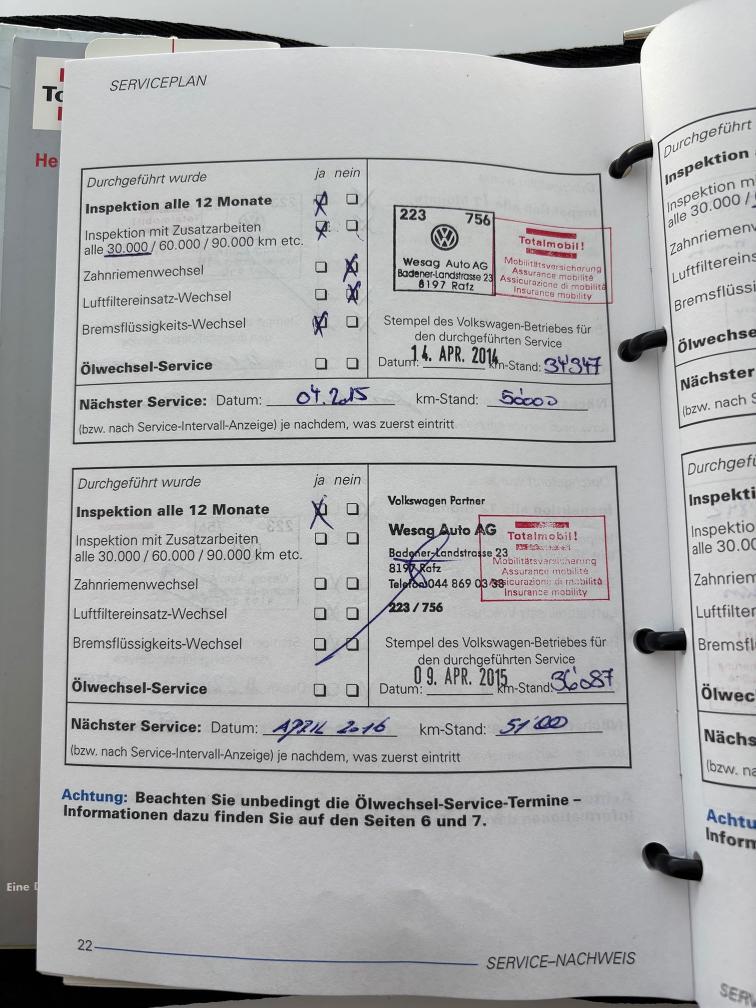 SERVICEPLAN
Durchgeführt wurde ja nein
Inspektion alle 12 Monate
Inspektion mit Zusatzarbeiten
alle 30.000 / 60.000 / 90.000 km etc.
Zahnriemenwechsel
Luftfiltereinsatz-Wechsel
Bremsflüssigkeits-Wechsel
Ölwechsel-Service
223 756
Wesag Auto AG
Badener-Landstrasse 23
8197 Rafz
Totalmobil!
Mobilitätsversicherung
Assurance mobilité
Assicurazione di mobilità
Insurance mobility
Stempel des Volkswagen-Betriebes für
den durchgeführten Service
Datum: 14. APR. 2014 km-Stand: 34'347
Nächster Service: Datum: 04.2015 km-Stand: 50000
(bzw. nach Service-Intervall-Anzeige) je nachdem, was zuerst eintritt
Durchgeführt wurde ja nein
Inspektion alle 12 Monate
Inspektion mit Zusatzarbeiten
alle 30.000 / 60.000 / 90.000 km etc.
Zahnriemenwechsel
Luftfiltereinsatz-Wechsel
Bremsflüssigkeits-Wechsel
Ölwechsel-Service
Volkswagen Partner
Wesag Auto AG
Badener-Landstrasse 23
8197 Rafz
Telefon 044 869 03 38
223 / 756
Totalmobil!
Mobilitätsversicherung
Assurance mobilité
Assicurazione di mobilità
Insurance mobility
Stempel des Volkswagen-Betriebes für
den durchgeführten Service
Datum: 09. APR. 2015 km-Stand: 36'087
Nächster Service: Datum: APRIL 2016 km-Stand: 51'000
(bzw. nach Service-Intervall-Anzeige) je nachdem, was zuerst eintritt
Achtung: Beachten Sie unbedingt die Ölwechsel-Service-Termine –
Informationen dazu finden Sie auf den Seiten 6 und 7.
22
SERVICE–NACHWEIS
Durchgeführt
Inspektion
alle 30.000 /
Ölwechse
Nächster